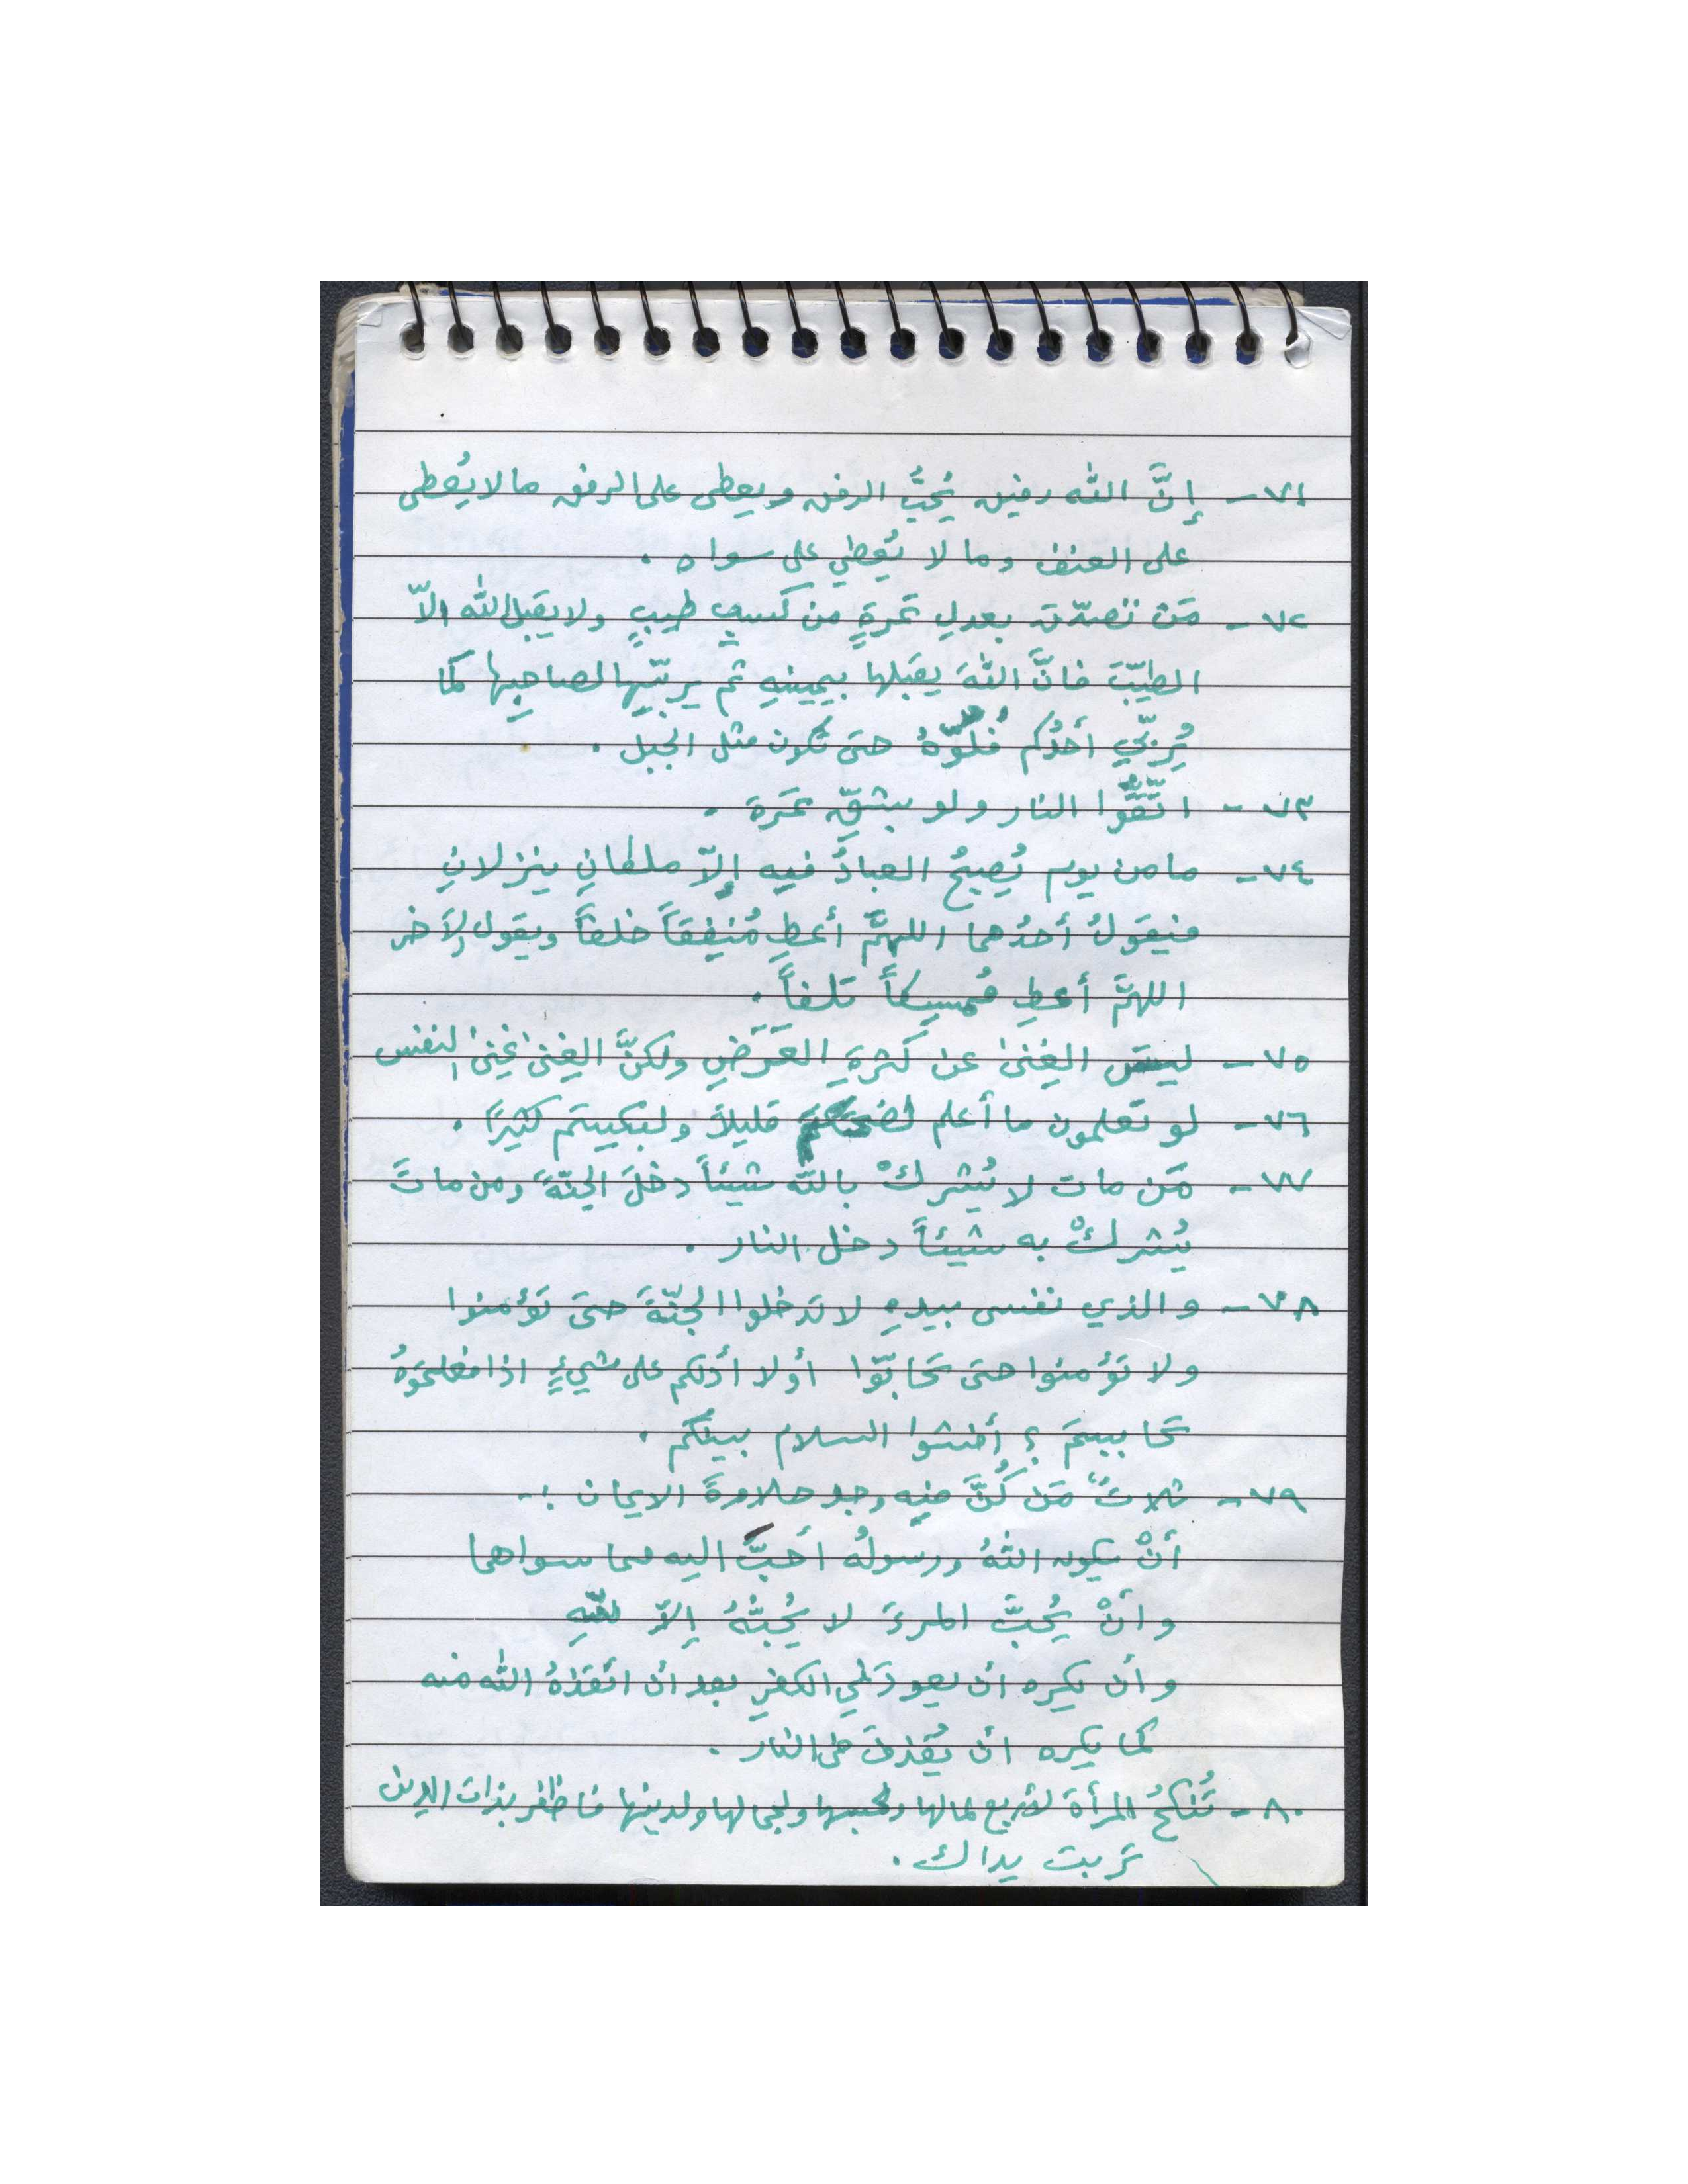 ٧١- إنَّ الله رفيق يُحبُّ الرفق ويعطى على الرفق مالا يُعطى
على العنف وما لا يُعطي على سواه .
٧٢- مَن تصدّق بعدلِ تمرةٍ من كسبٍ طيبٍ ولا يقبل الله الاّ
الطيّبَ فانَّ اللهَ يقبلها بيمينهِ ثم يربّيها لصاحِبِها كما
يُربّي أحدُكم فُلوّهُ حتى تكون مثل الجبل .
٧٣- اتّقُوا النار ولو بشقِّ تمرة .
٧٤- مامن يوم يُصبحُ العبادُ فيه إلاّ ملكانِ ينزلانِ
فيقولُ أحدُهما اللهمَّ أعطِ مُنفِقاً خلفاً ويقول الآخر
اللهمَّ أعطِ مُمسِكاً تلفاً .
٧٥- ليسَ الغِنىٰ عن كَثرةِ العَرَضِ ولكنَّ الغِنىٰ غِنىٰ النفس
٧٦- لو تعلمون ما أعلم لضحكتم قليلاً ولبكيتم كثيرًا .
٧٧- مَن مات لا يُشركْ بالله شيئاً دخلَ الجنّةَ ومن ماتَ
يُشركْ به شيئاً دخل النار .
٧٨- والذي نفسى بيدهِ لا تدخلوا الجنّةَ حتىَ تؤمنوا
ولا تؤمنوا حتى تحابّوا أولا أدلكم على شيءٍ اذا فعلتموهُ
تحاببتمَ ؟ أفشوا السلام بينكم .
٧٩- ثلاثٌ مَن كُنَّ فيه وجد حلاوةَ الايمان :-
أنْ يكون اللهُ ورسولُه أحَبَّ اليه مما سواهما
وأنْ يُحبَّ المرءَ لا يُحبُّهُ إلاّ للّهِ
وأن يكره ان يعود في الكفرِ بعد ان انقذهُ الله منه
كما يكره ان يُقذفَ فى النار .
٨٠- تُنكحُ المرأة لأربع لمالها ولحسبها ولجمالها ولدينها فاظفر بذات الدين
تربت يداك .